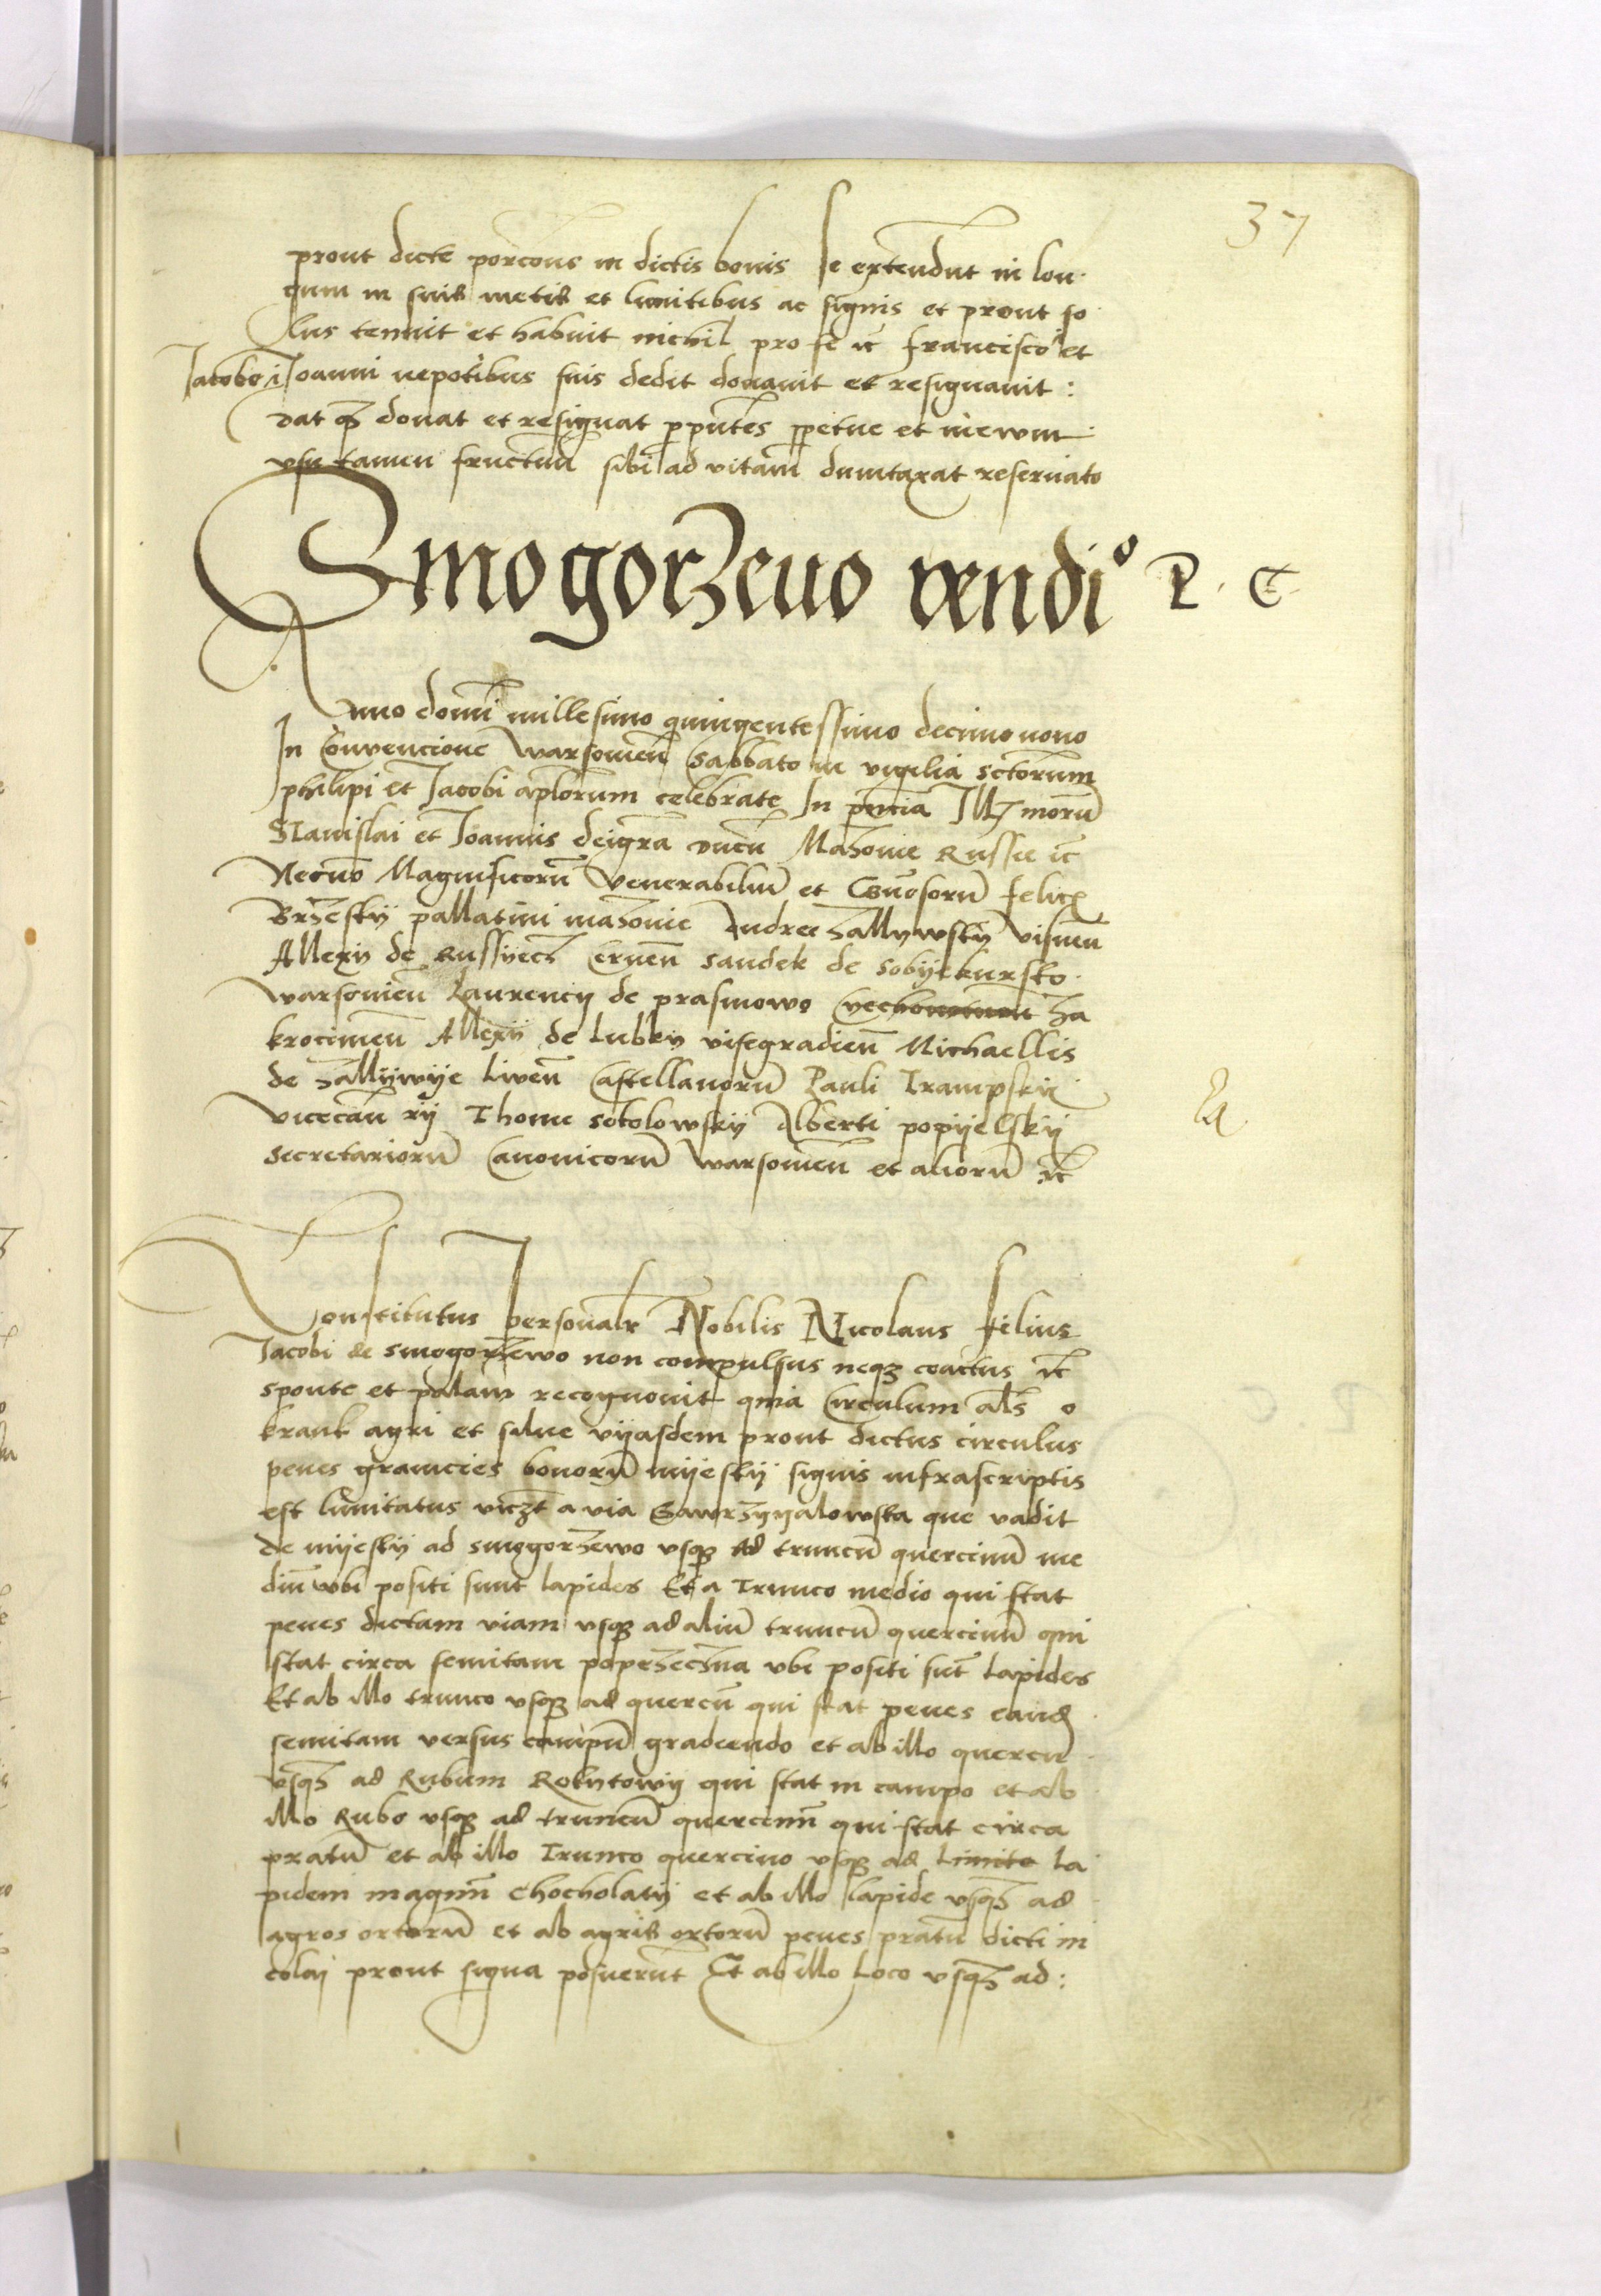 37
prout dicte porcõns in dictis bonis se extendunt in lon
gum in suis metis et limitibus ac signis et prout so
lus tenuit et habuit nichil pro se etc̃ francisco et
Jacobo Joanni nepotibus suis dedit donauit et resignauit :
dat qz donat et resignat p pñtes ppetue et in ewm
vsu tamen fructuũ sibi ad vitam dumtaxat reseruato
Smogorzewo vendiº P. C.
Anno domĩ millesimo quingentessimo decimo nono
In Conuencione Warsouieñ Sabbato in vigilia sctorum
philipi et Jacobi aplorum celebrate In pñcia Ill morũ
Stanislai et Joannis dei grã ducũ Mazouie Russie etc̃
Necnõ Magnificorũ Venerabiliũ et Gñosorũ felicẹ
Brzesky pallatini mazouie Andree zallywsky visneñ
Allexy de Russyecz Cerneñ Sandek de Sobyekursko
Warsouieñ Laurency de prasmowo za
krocimeñ Allexy de lubky visegradieñ Michaellis
de zallywye Liveñ Castellanorũ Pauli Trampsky
Vicecan rij Thome Sokolowsky Alberti popyelsky
Secretariorũ Canonicorũ Warsouieñ et aliorũ etc̃
Constitutus personalr Nobilis Nicolaus filius
Jacobi de Smogorzewo non compulsus neqz coactus etc̃
sponte et palam recognouit quia Circulum als o
krank agri et silue vyasdem prout dictus circulus
penes granicies bonorũ myesky signis infrascriptis
est limitatus viczt a via Gawrzyyalowska que vadit
de myesky ad smogorzewo vsqz ad truncũ quercinũ me
diũ vbi positi sunt lapides Et a Trunco medio qui stat
penes dictam viam vsqz ad aliũ truncũ quercinũ qui
stat circa semitam poprzeczna vbi positi sũt lapides
Et ab illo trunco vsqz ad quercũ qui stat penes eand
semitam versus campũ gradiendo et ab illo quercu
vsqz ad Rubum Rokytowy qui stat in campo et ab
illo Rubo vsqz ad truncũ quercinũ qui stat circa
pratũ et ab illo Trunco quercino vsqz ad Limite la
pidem magnũ Chocholaty et ab illo lapide vsqz ad
agros ortorũ et ab agris ortorũ penes pratũ dicti ni
colaj prout signa posuerũt Et ab illo Loco vsqz ad :